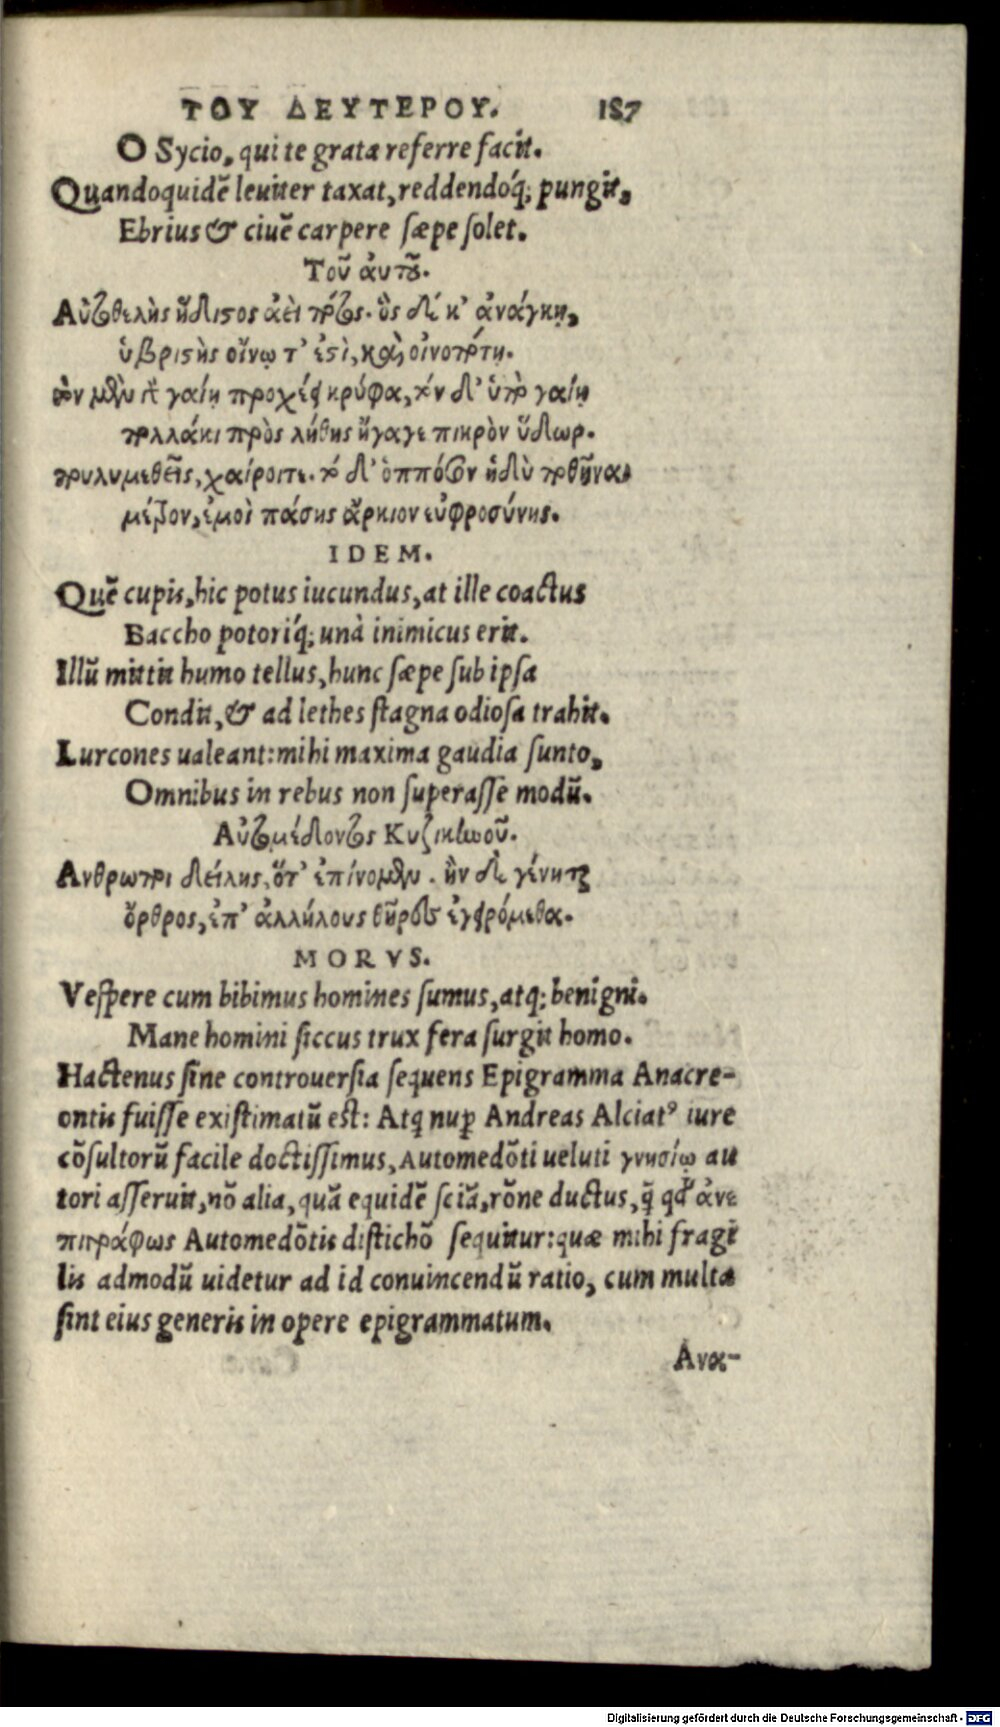 ΤΟΥ ΔΕΥΤΕΡΟΥ. 187
O Sycio, qui te grata referre facit.
Quandoquidẽ leuiter taxat, reddendóq; pungit,
Ebrius & ciuẽ carpere sæpe solet.
Τοῦ αὐτοῦ.
Αὐτοθελὴς ἥδιστος ἀεὶ πότος. ὃς δέ κ' ἀνάγκῃ,
ὑβριστὴς οἴνῳ τ' ἐστὶ, καὶ οἰνοπότῃ.
τὸν μὲν γαίῃ προχέει κρύφα, τὸν δ' ὑπὸ γαίῃ
πολλάκι πρὸς λήθης ἤγαγε πικρὸν ὕδωρ.
πουλυμεθεῖς, χαίροιτε. τὸ δ' ὁππόσον ἡδὺ ποθῆναι
μέτρον, ἐμοὶ πάσης ἄρκιον εὐφροσύνης.
IDEM.
Quẽ cupis, hic potus iucundus, at ille coactus
Baccho potoríq; unà inimicus erit.
Illũ mittit humo tellus, hunc sæpe sub ipsa
Condit, & ad lethes stagna odiosa trahit.
Lurcones ualeant: mihi maxima gaudia sunto,
Omnibus in rebus non superasse modũ.
Αὐτομέδοντος Κυζικηνοῦ.
Ανθρωποι δείλης, ὅτ' ἐπίνομεν. ἢν δὲ γένηται
ὄρθρος, ἐπ' ἀλλήλους θῆρες ἐγειρόμεθα.
MORVS.
Vespere cum bibimus homines sumus, atq; benigni.
Mane homini siccus trux fera surgit homo.
Hactenus sine controuersia sequens Epigramma Anacre-
ontis fuisse existimatũ est: Atq nuꝑ Andreas Alciatꝰ iure
cõsultorũ facile doctissimus, Automedõti ueluti γνησίῳ au
tori asseruit, nõ alia, quã equidẽ sciã, rõne ductus, q̃ qđ ἀνε
πιγράφως Automedõtis distichõ sequitur: quæ mihi fragi
lis admodũ uidetur ad id conuincendũ ratio, cum multa
sint eius generis in opere epigrammatum.
Ανα-
Digitalisierung gefördert durch die Deutsche Forschungsgemeinschaft - DFG